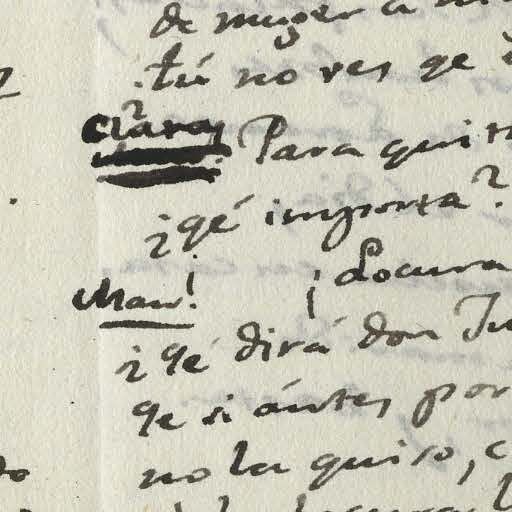 de muger a
tú no ves qe
Clara Para qui
¿qé importa?
Mau! ¡Locura
¿Qé dirá don Ju
qe si ántes por
no la quiso, c